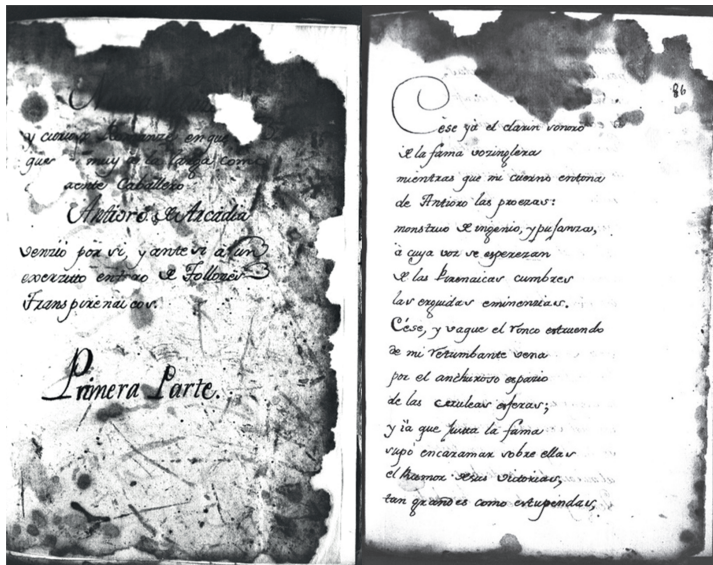 y curioso Romanze en que
muy a la larga como
Caballero
Antioro de Arcadia
venzió por si, y ante si a un
exercito entero de Follones
Transpirenaicos.
Primera Parte.
86
Cése yá el clarin sonoro
de la fama vozinglera
mientras que mi cuerno entona
de Antioro las proezas:
monstruo de ingenio, y pujanza,
à cuya voz se esperezan
de las Pirenaicas cumbres
las erguidas eminenzias.
Cése, y vague el ronco estruendo
de mi retumbante vena
por el anchuroso espazio
de las ceruleas esferas;
y ià que Justa la fama
supo encaramar sobre ellas
el Rumor de sus victorias,
tan grandes como estupendas,